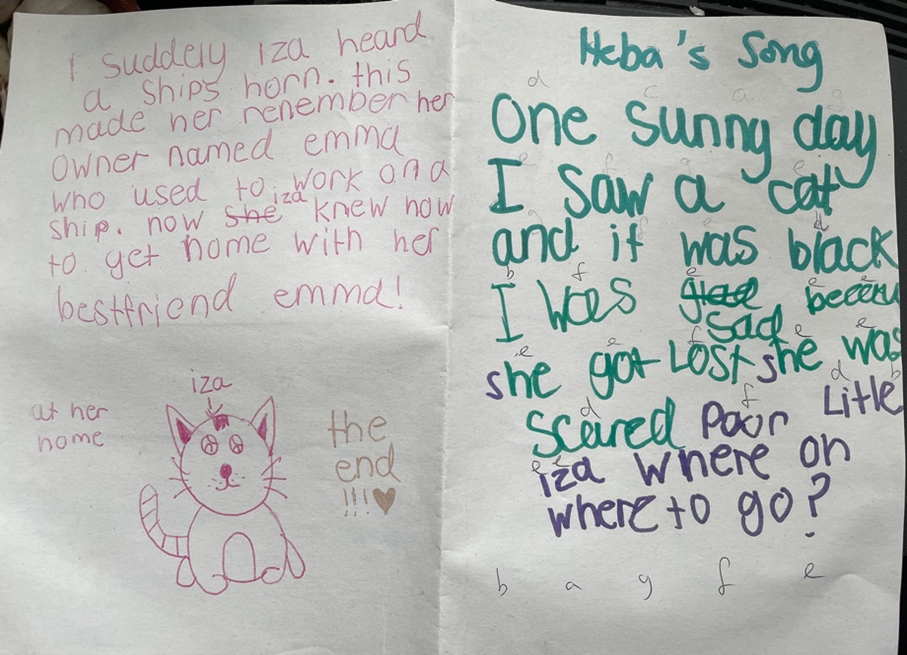 I suddely iza heard
a ships horn. this
made her renember her
owner named emma
who used to work on a
ship. now she iza knew how
to get home with her
bestfriend emma!
iza
at her
home
the
end
!!!♥
Heba's Song
d c a g
One sunny day
I saw a cat
and it was black
b f e e
I was glad sad
she got Lost she was
d f d b
Scared Poor Litle
e e
iza where oh
where to go?
b a g f e